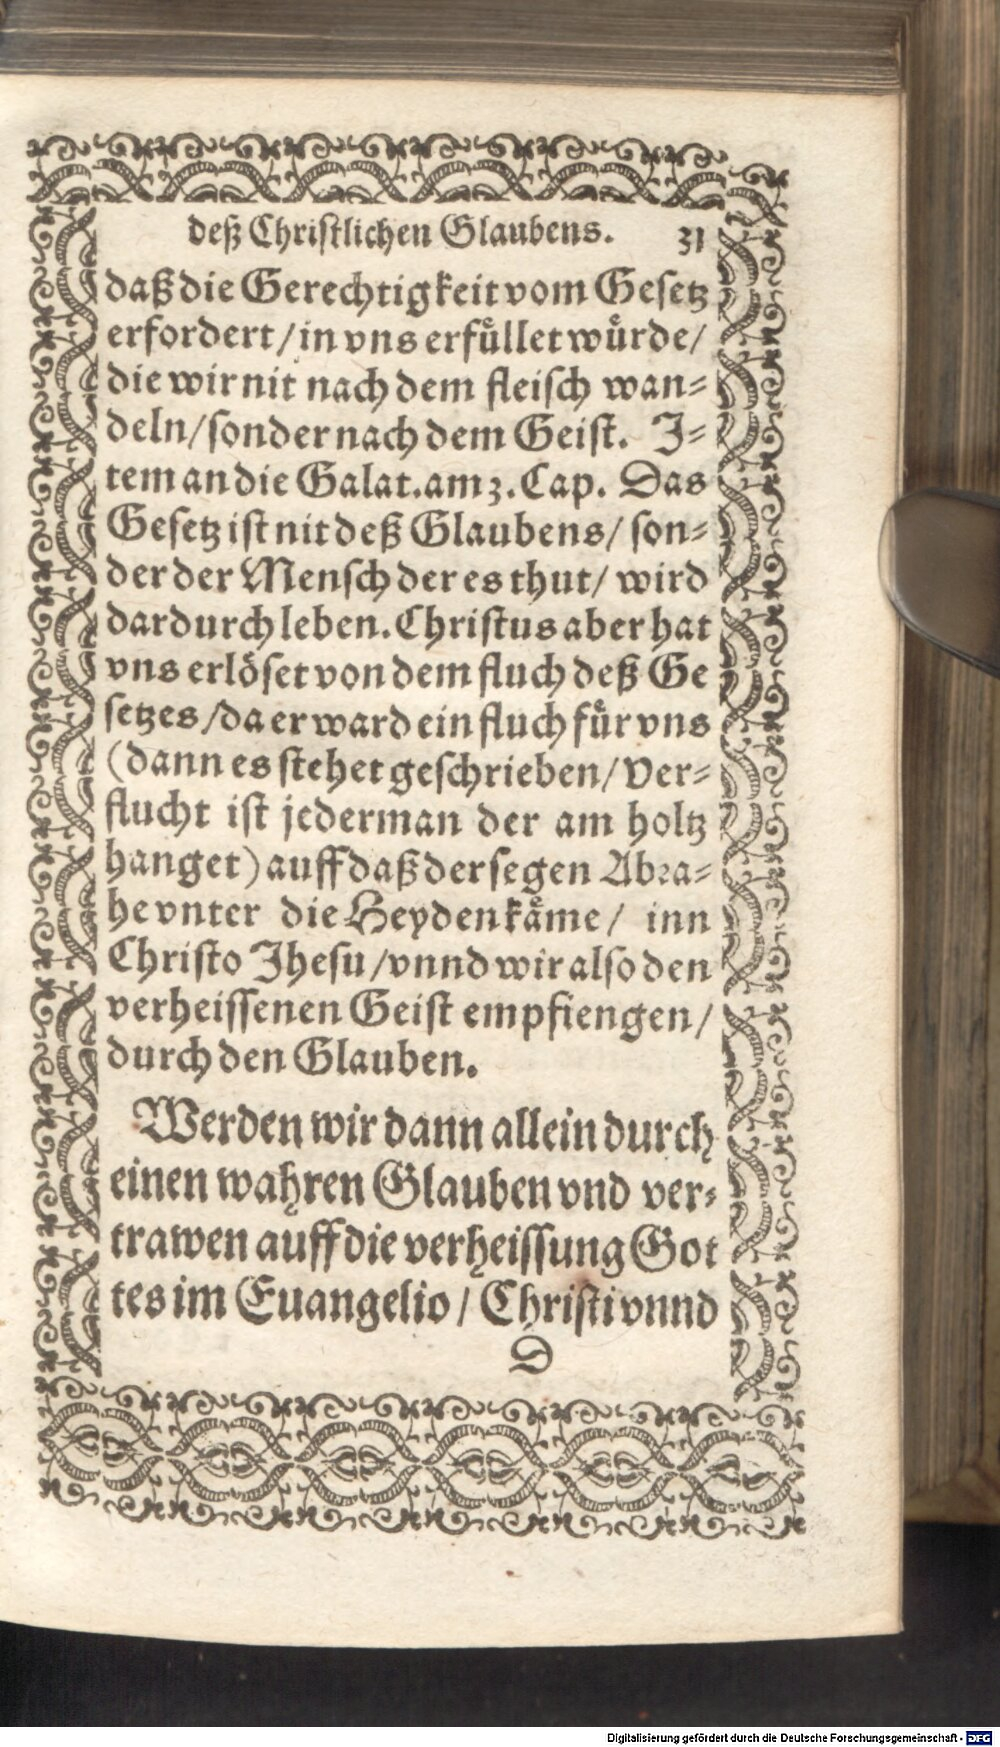 deß Christlichen Glaubens. 31
daß die Gerechtigkeit vom Gesetz
erfordert / in vns erfüllet würde /
die wir nit nach dem fleisch wan⸗
deln / sonder nach dem Geist. J⸗
tem an die Galat. am 3. Cap. Das
Gesetz ist nit deß Glaubens / son⸗
der der Mensch der es thut / wird
dardurch leben. Christus aber hat
vns erlöset von dem fluch deß Ge
setzes / da er ward ein fluch für vns
(dann es stehet geschrieben / Ver⸗
flucht ist jederman der am holtz
hanget) auff daß der segen Abra⸗
he vnter die Heyden käme / inn
Christo Jhesu / vnnd wir also den
verheissenen Geist empfiengen /
durch den Glauben.
Werden wir dann allein durch
einen wahren Glauben vnd ver⸗
trawen auff die verheissung Got
tes im Euangelio / Christi vnnd
D
Digitalisierung gefördert durch die Deutsche Forschungsgemeinschaft - DFG